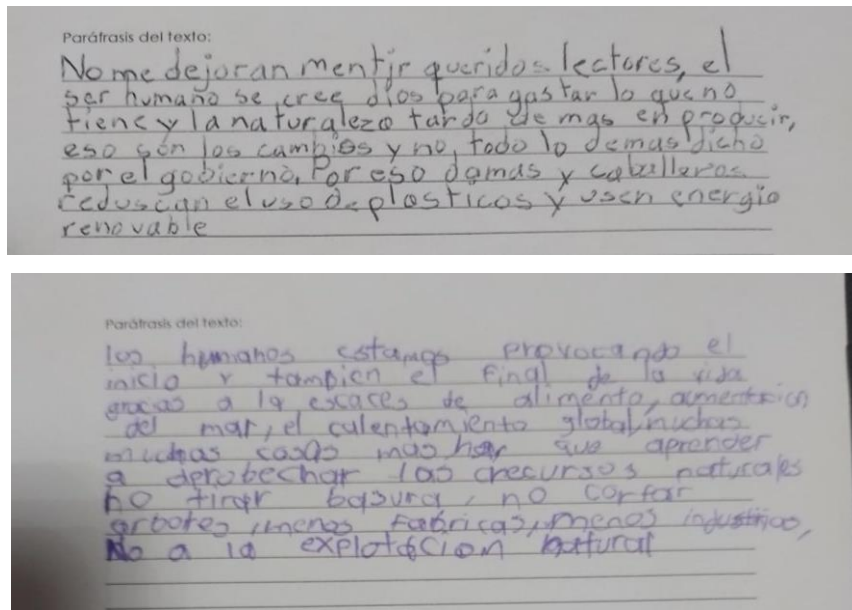 Paráfrasis del texto:
No me dejoran mentir queridos lectores, el
ser humano se cree dios para gastar lo que no
tiene y la naturaleza tarda de mas en producir,
eso son los cambios y no, todo lo demas dicho
por el gobierno, Por eso damas y caballeros
reduscan el uso de plasticos y usen energia
renovable
Paráfrasis del texto:
los humanos estamos provocando el
inicio y tambien el final de la vida
gracias a la escaces de alimento,
del mar, el calentamiento global, muchas
muchas cosas mas hay que aprender
a derobechar las crecursos naturales
no tirar basura, no cortar
arboles, menos fabricas, menos industrias,
No a la explotacion natural